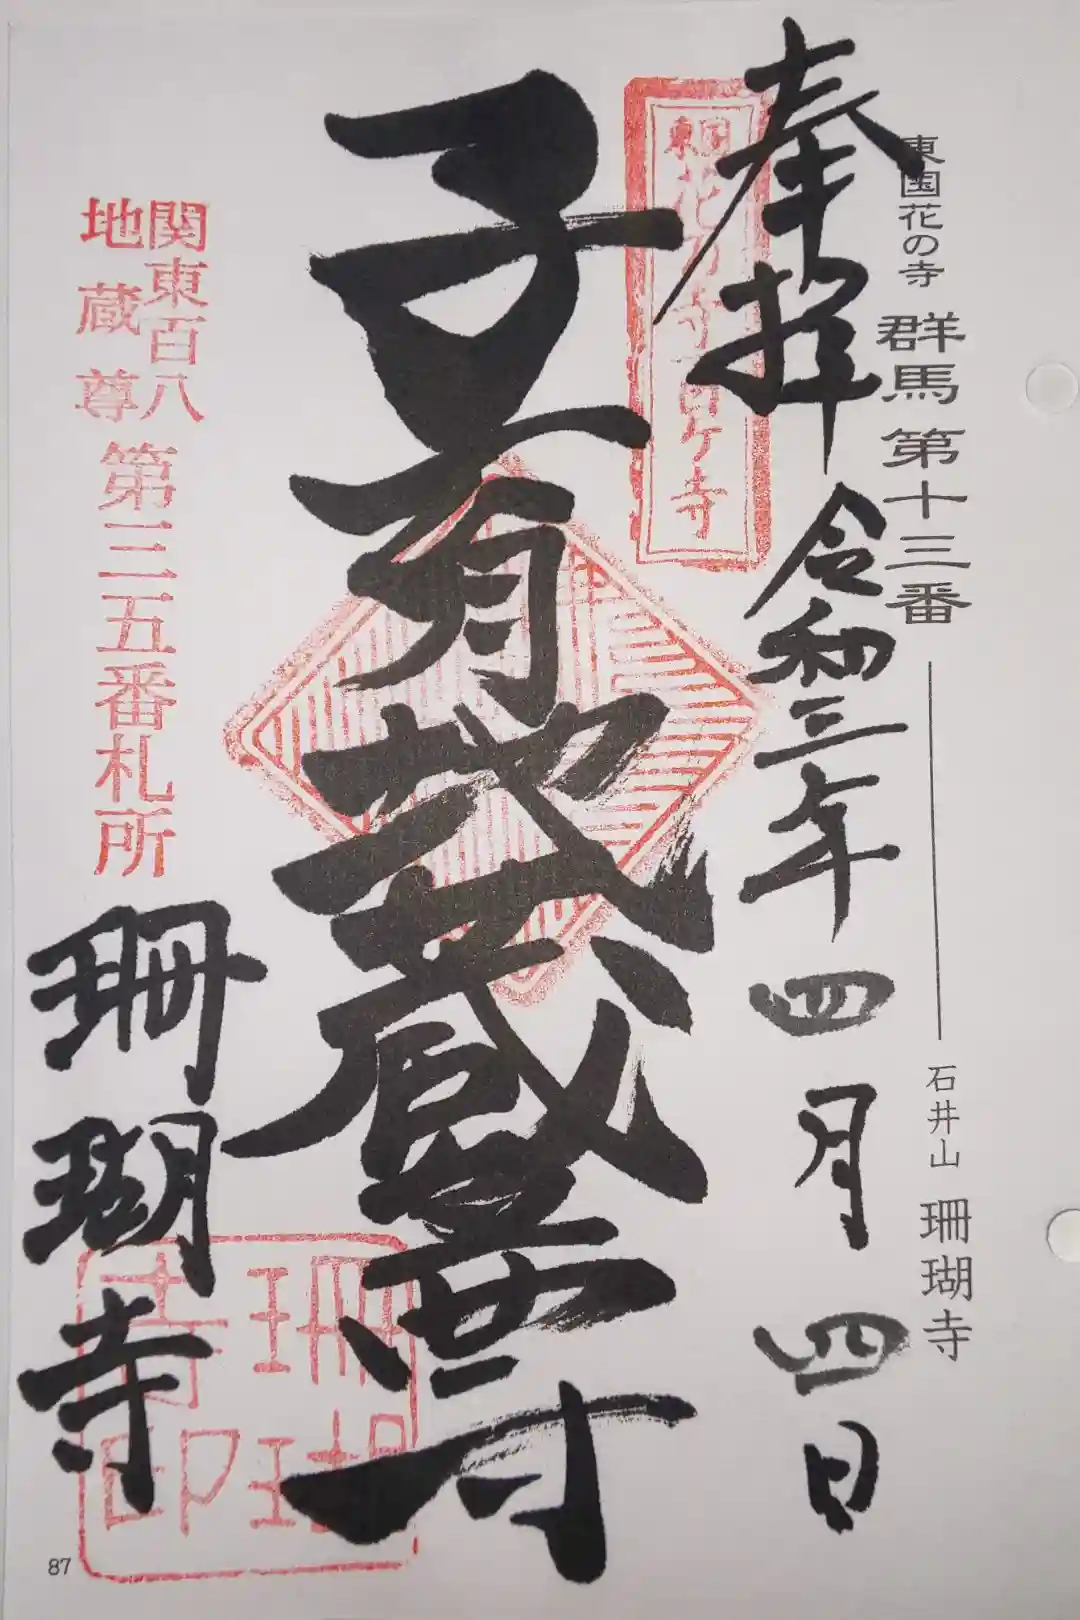 東国花の寺 群馬第十三番 石井山 珊瑚寺
奉拝 令和三年 四月 四日
東国花の寺百ケ寺
子育地蔵尊
関東百八
地蔵尊
第三五番札所
珊瑚寺
珊瑚
寺印
87